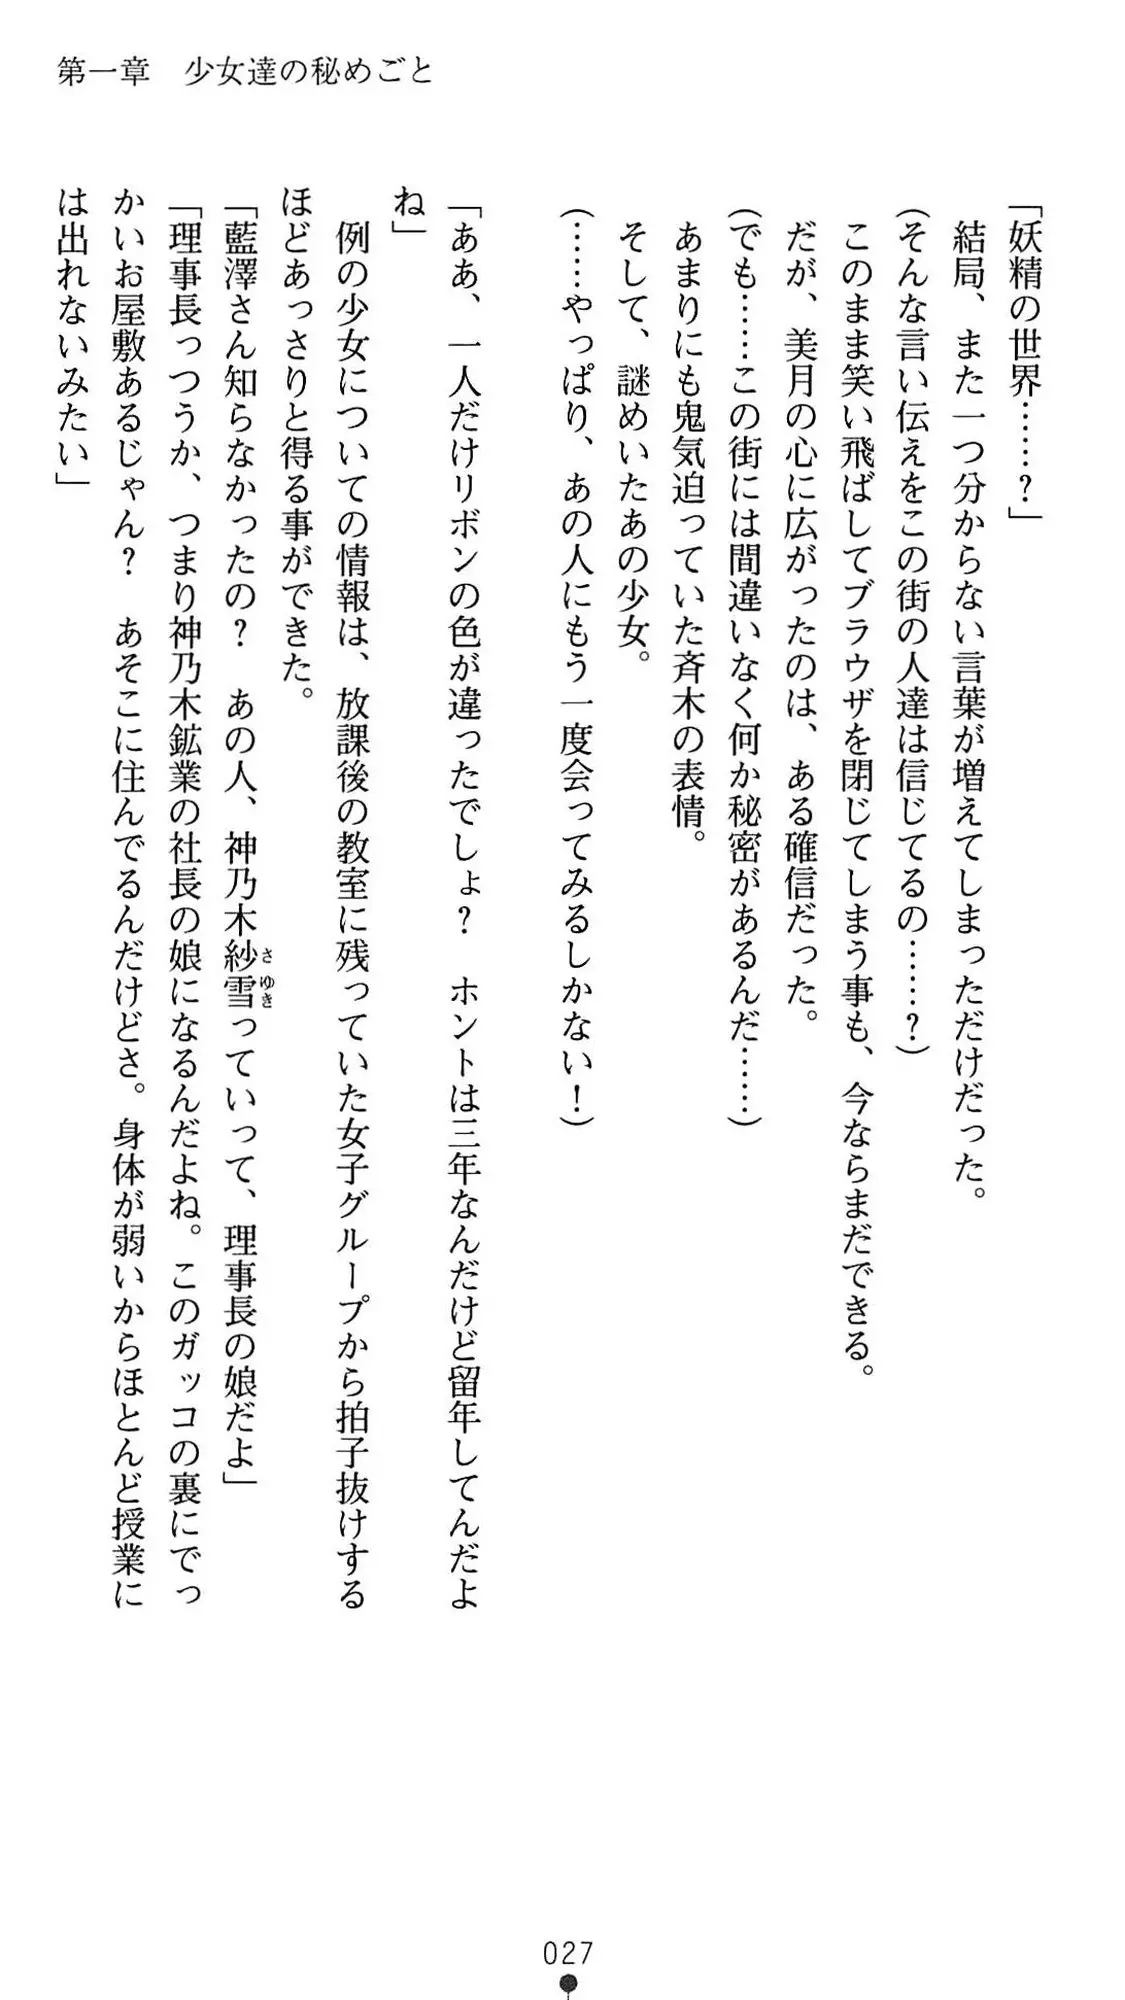 第一章　少女達の秘めごと
「妖精の世界……？」
　結局、また一つ分からない言葉が増えてしまっただけだった。
（そんな言い伝えをこの街の人達は信じてるの……？）
　このまま笑い飛ばしてブラウザを閉じてしまう事も、今ならまだできる。
　だが、美月の心に広がったのは、ある確信だった。
（でも……この街には間違いなく何か秘密があるんだ……）
　あまりにも鬼気迫っていた斉木の表情。
　そして、謎めいたあの少女。
（……やっぱり、あの人にもう一度会ってみるしかない！）
「ああ、一人だけリボンの色が違ったでしょ？　ホントは三年なんだけど留年してんだよ
ね」
　例の少女についての情報は、放課後の教室に残っていた女子グループから拍子抜けする
ほどあっさりと得る事ができた。
「藍澤さん知らなかったの？　あの人、神乃木紗雪っていって、理事長の娘だよ」
さゆき
「理事長っつうか、つまり神乃木鉱業の社長の娘になるんだよね。このガッコの裏にでっ
かいお屋敷あるじゃん？　あそこに住んでるんだけどさ。身体が弱いからほとんど授業に
は出れないみたい」
027